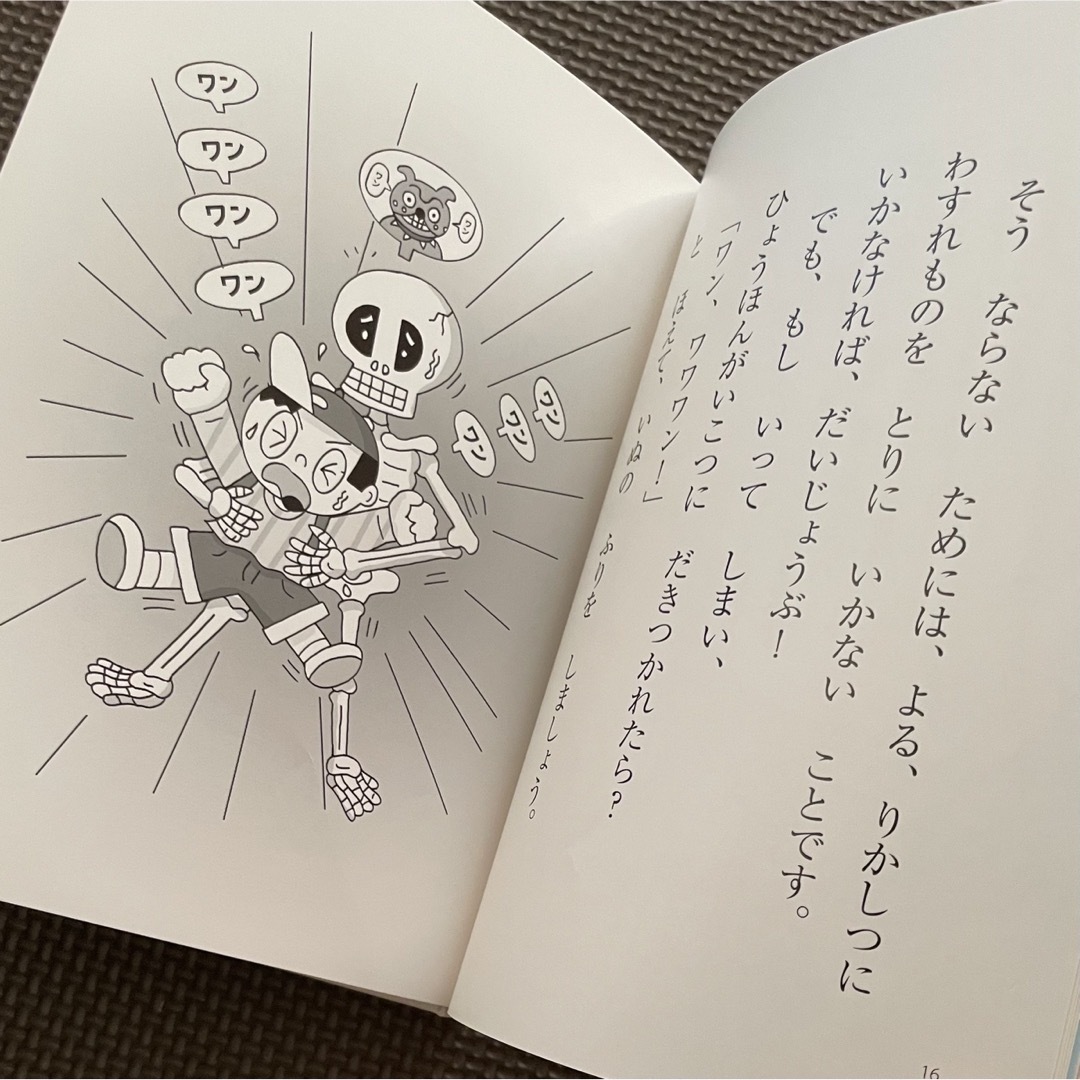 そう ならない ためには、よる、りかしつに
わすれものを とりに いかない ことです。
いかなければ、だいじょうぶ！
でも、もし いって しまい、
ひょうほんがいこつに だきつかれたら？
「ワン、ワワワン！」
と ほえて、いぬの ふりを しましょう。
16
ワン
ワン
ワン
ワン
ワン
ワン
ワン
ワン
ワン